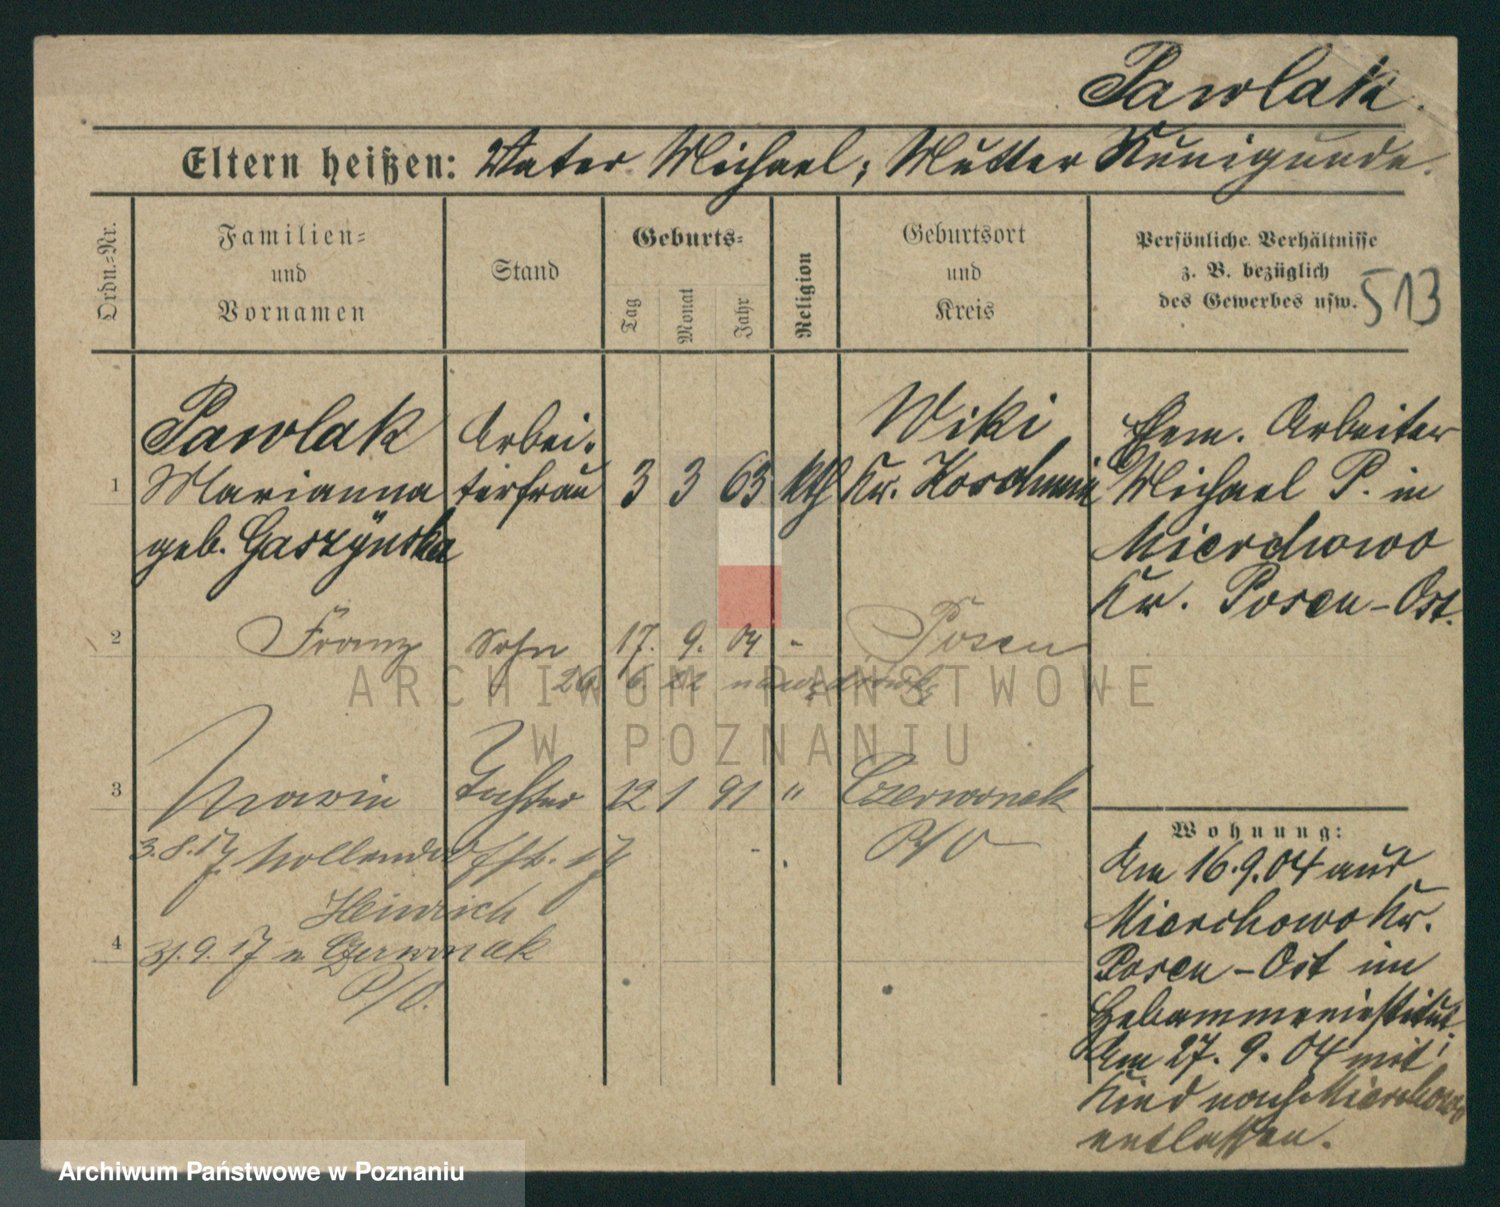 Pawlak.
Eltern heißen: Vater Michael; Mutter Kunigunde.
Ordn.-Nr.
Familien-
und
Vornamen
Stand
Geburts-
Tag
Monat
Jahr
Religion
Geburtsort
und
Kreis
Persönliche Verhältnisse
z. B. bezüglich
des Gewerbes usw.
513
1
Pawlak
Marianna
geb. Gaszynska
Arbei-
terfrau
3 3 63 kth
Wiki
Kr. Koschmin
Ehem. Arbeiter
Michael P. in
Mierchowo
Kr. Posen-Ost.
2 Franz Sohn 17. 9. 04 - Posen
26 6
ARCHIWUM PAŃSTWOWE
W POZNANIU
3 Marie Tochter 12 1 91 " Czerwonak
P/O
3.8.17 z. Hollender 17
Heinrich
4
31.9.17 n Czerwonak
P/O.
Wohnung:
Am 16.9.04 aus
Mierchowo Kr.
Posen-Ost im
Hebammeninstitut.
Am 27. 9. 04 mit
Kind nach Mierchowo
entlassen.
Archiwum Państwowe w Poznaniu